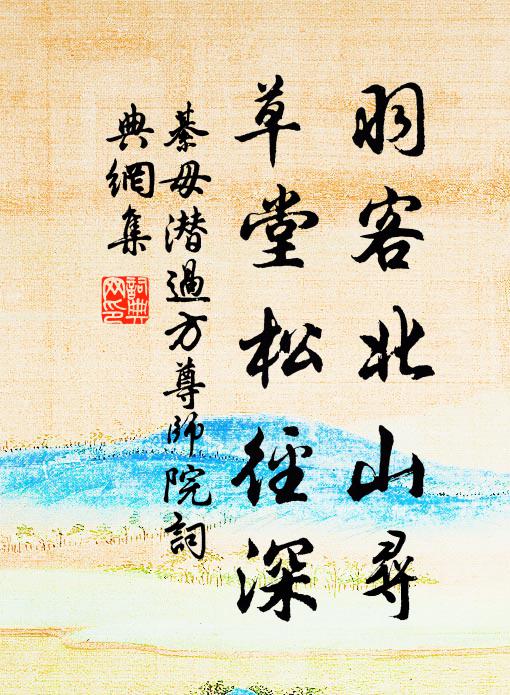 羽客北山尋
草堂松徑深
綦毋潜過方尊師院詞
典網集
詞典
网印